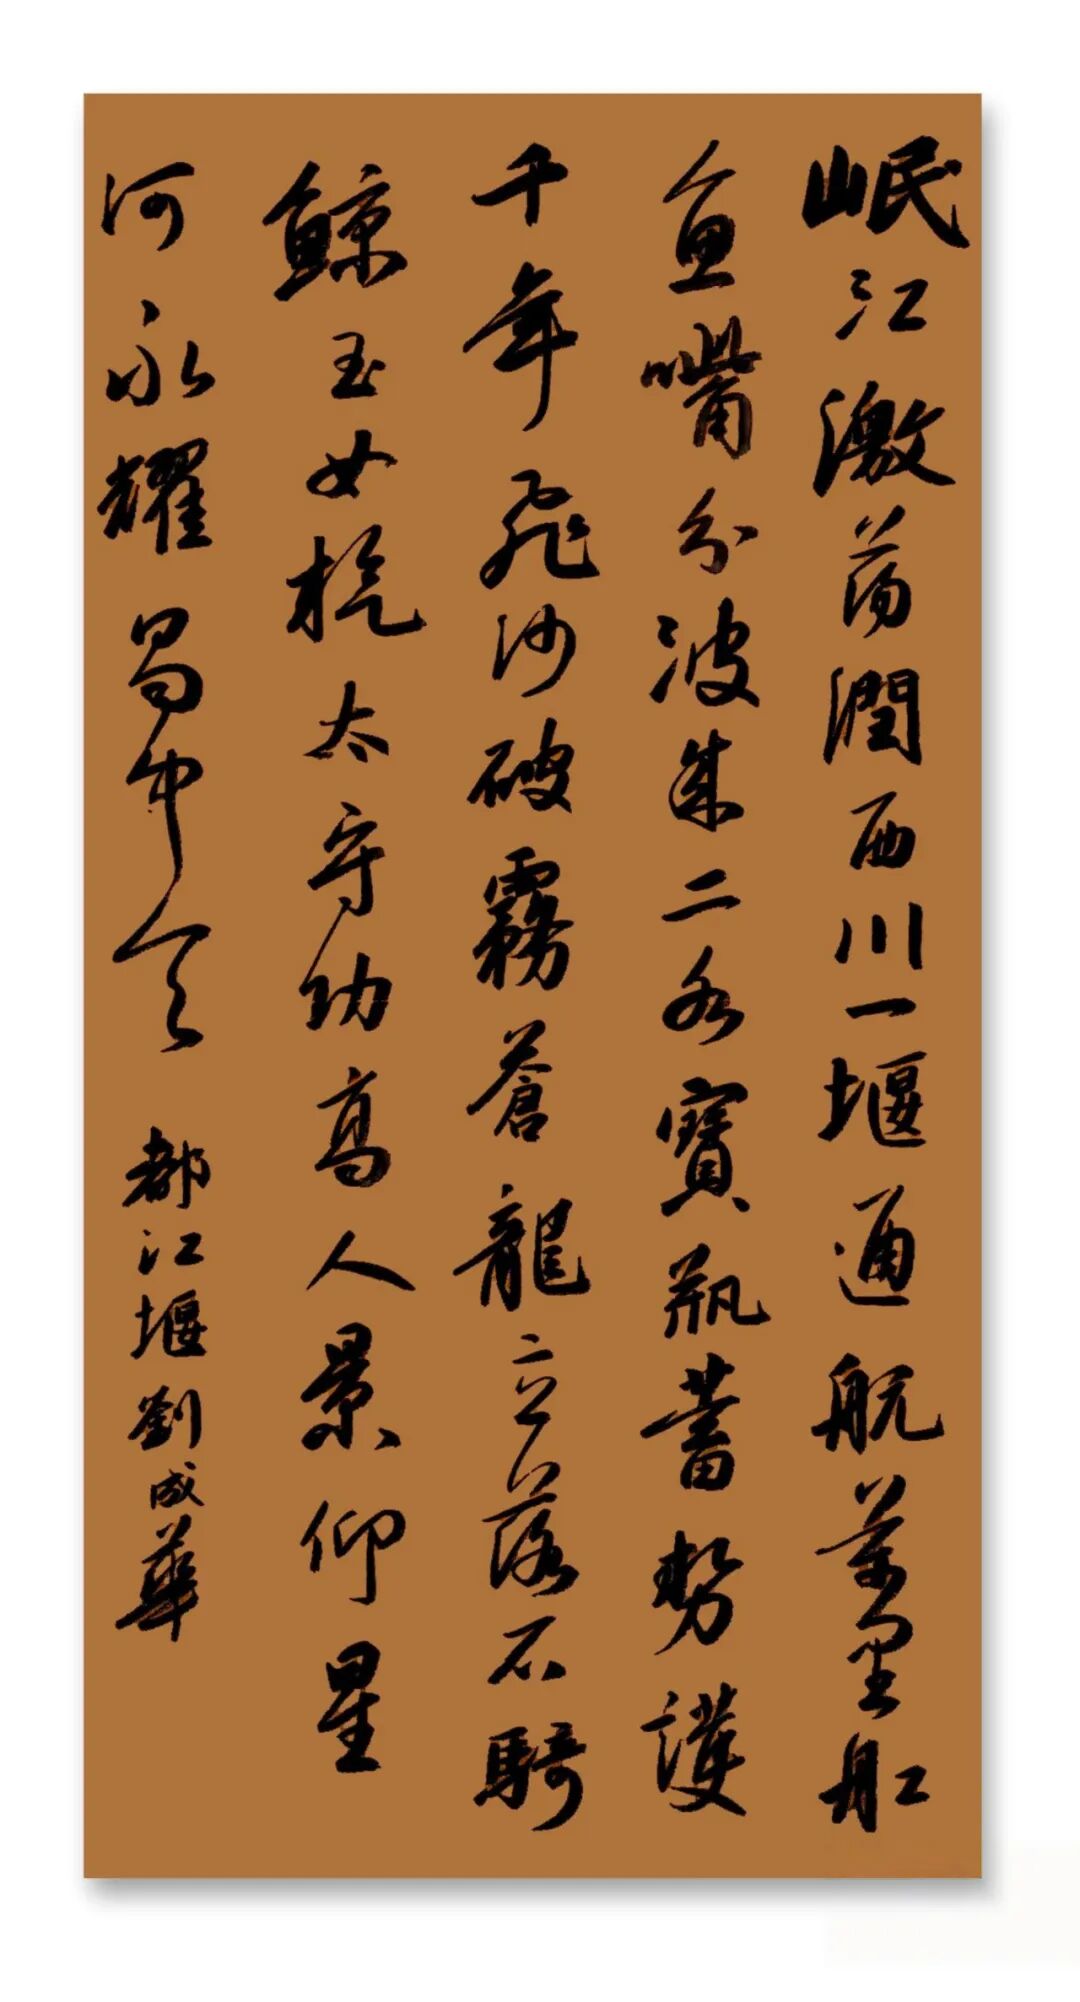 岷江激荡潤西川一堰通航萬里舡
鱼嘴分波成二水寶瓶蓄勢護
千年飛沙破霧蒼龍立落石騎
鯨玉女旋太守功高人景仰星
河永耀蜀中天 都江堰劉成華